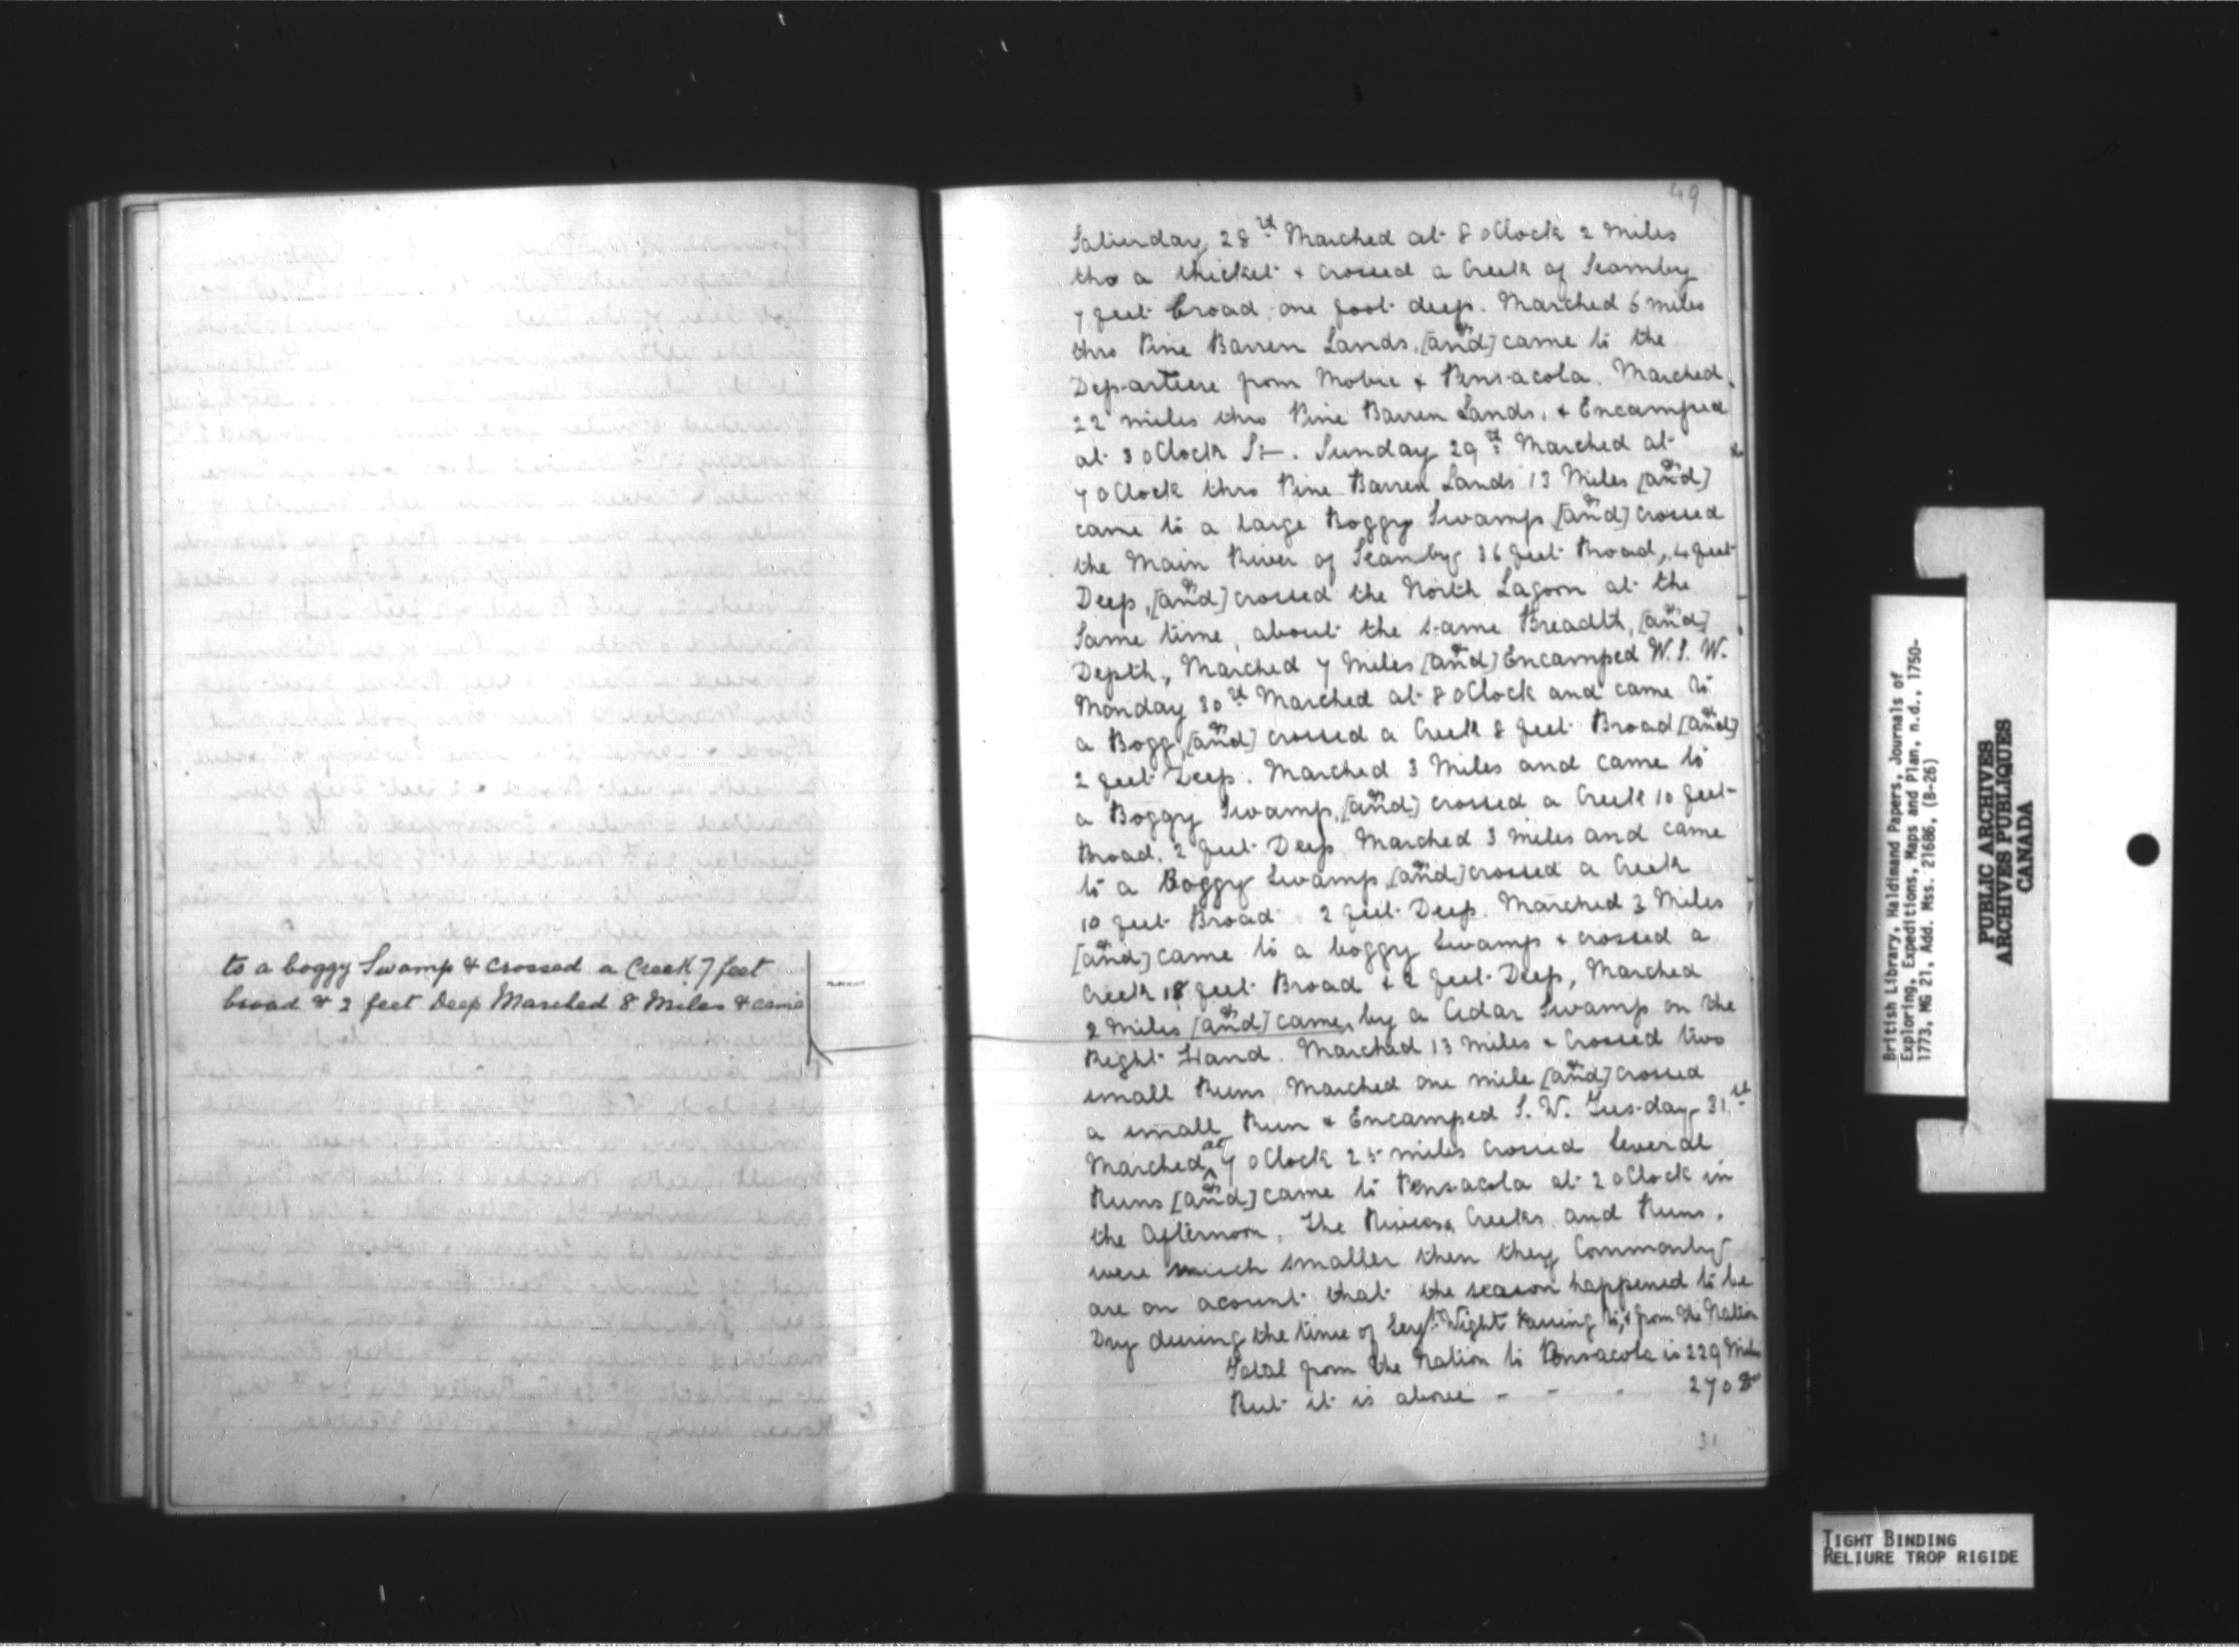 to a boggy Swamp & crossed a Creek 7 feet
broad & 2 feet Deep Marched 8 Miles & came
49
Saturday 28th Marched at 8 oClock 2 Miles
thro a thicket & crossed a Creek of Scamby
7 feet broad, one foot deep. Marched 6 miles
thro Pine Barren Lands, [and] & came to the
Departure from Mobie & Pensacola. Marched
22 miles thro Pine Barren Lands, & Encamped
at 3 oClock St. Sunday 29th Marched at
7 oClock thro Pine Barren Lands 13 Miles [and] &
came to a large Boggy Swamp [and] & crossed
the Main River of Scamby 36 feet Broad, 4 feet
Deep, [and] & crossed the North Lagoon at the
Same time, about the same Breadth, [and] &
Depth, Marched 7 Miles [and] & Encamped W.S.W.
Monday 30th Marched at 8 oClock and came to
a Bogg, [and] & crossed a Creek 8 feet Broad [and] &
2 feet Deep. Marched 3 Miles and came to
a Boggy Swamp, [and] & crossed a Creek 10 feet
Broad, 2 feet Deep. Marched 3 miles and came
to a Boggy Swamp, [and] & crossed a Creek
10 feet Broad 2 feet Deep. Marched 3 Miles
[and] & came to a boggy Swamp & crossed a
Creek 18 feet Broad & 2 feet Deep, Marched
2 Miles [and] & came, by a Cedar Swamp on the
Right Hand. Marched 13 miles & Crossed two
small Runs Marched one mile [and] & crossed
a small Run & Encamped S.W. Tuesday 31st
Marched at 7 oClock 25 miles crossed Several
Runs [and] & came to Pensacola at 2 oClock in
the Afternoon. The Rivers, Creeks and Runs,
were much smaller then they Commonly
are on acount that the season happened to be
Dry during the time of Serjt. Wight Passing to, & from the Nation
Total from the Nation to Pensacola is 229 Miles
But it is above - - - 270 Do
31
British Library, Haldimand Papers, Journals of
Exploring, Expeditions, Maps and Plan, n.d., 1750-
1773, MG 21, Add. Mss. 21686, (B-26)
PUBLIC ARCHIVES
ARCHIVES PUBLIQUES
CANADA
TIGHT BINDING
RELIURE TROP RIGIDE